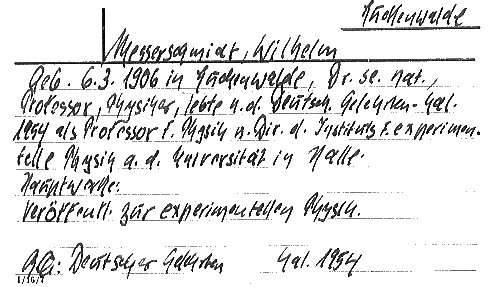 Luckenwalde
Messerschmidt, Wilhelm
Geb. 6.3. 1906 in Luckenwalde, Dr. sc. nat.,
Professor, Physiker, lebte n. d. Deutsch. Gelehrten-Kal.
1954 als Professor f. Physik u. Dir. d. Instituts f. experimen-
telle Physik a. d. Universität in Halle.
Hauptwerke:
Veröffentl. zur experimentellen Physik.
Deutscher Gelehrten Kal. 1954
1/16/7